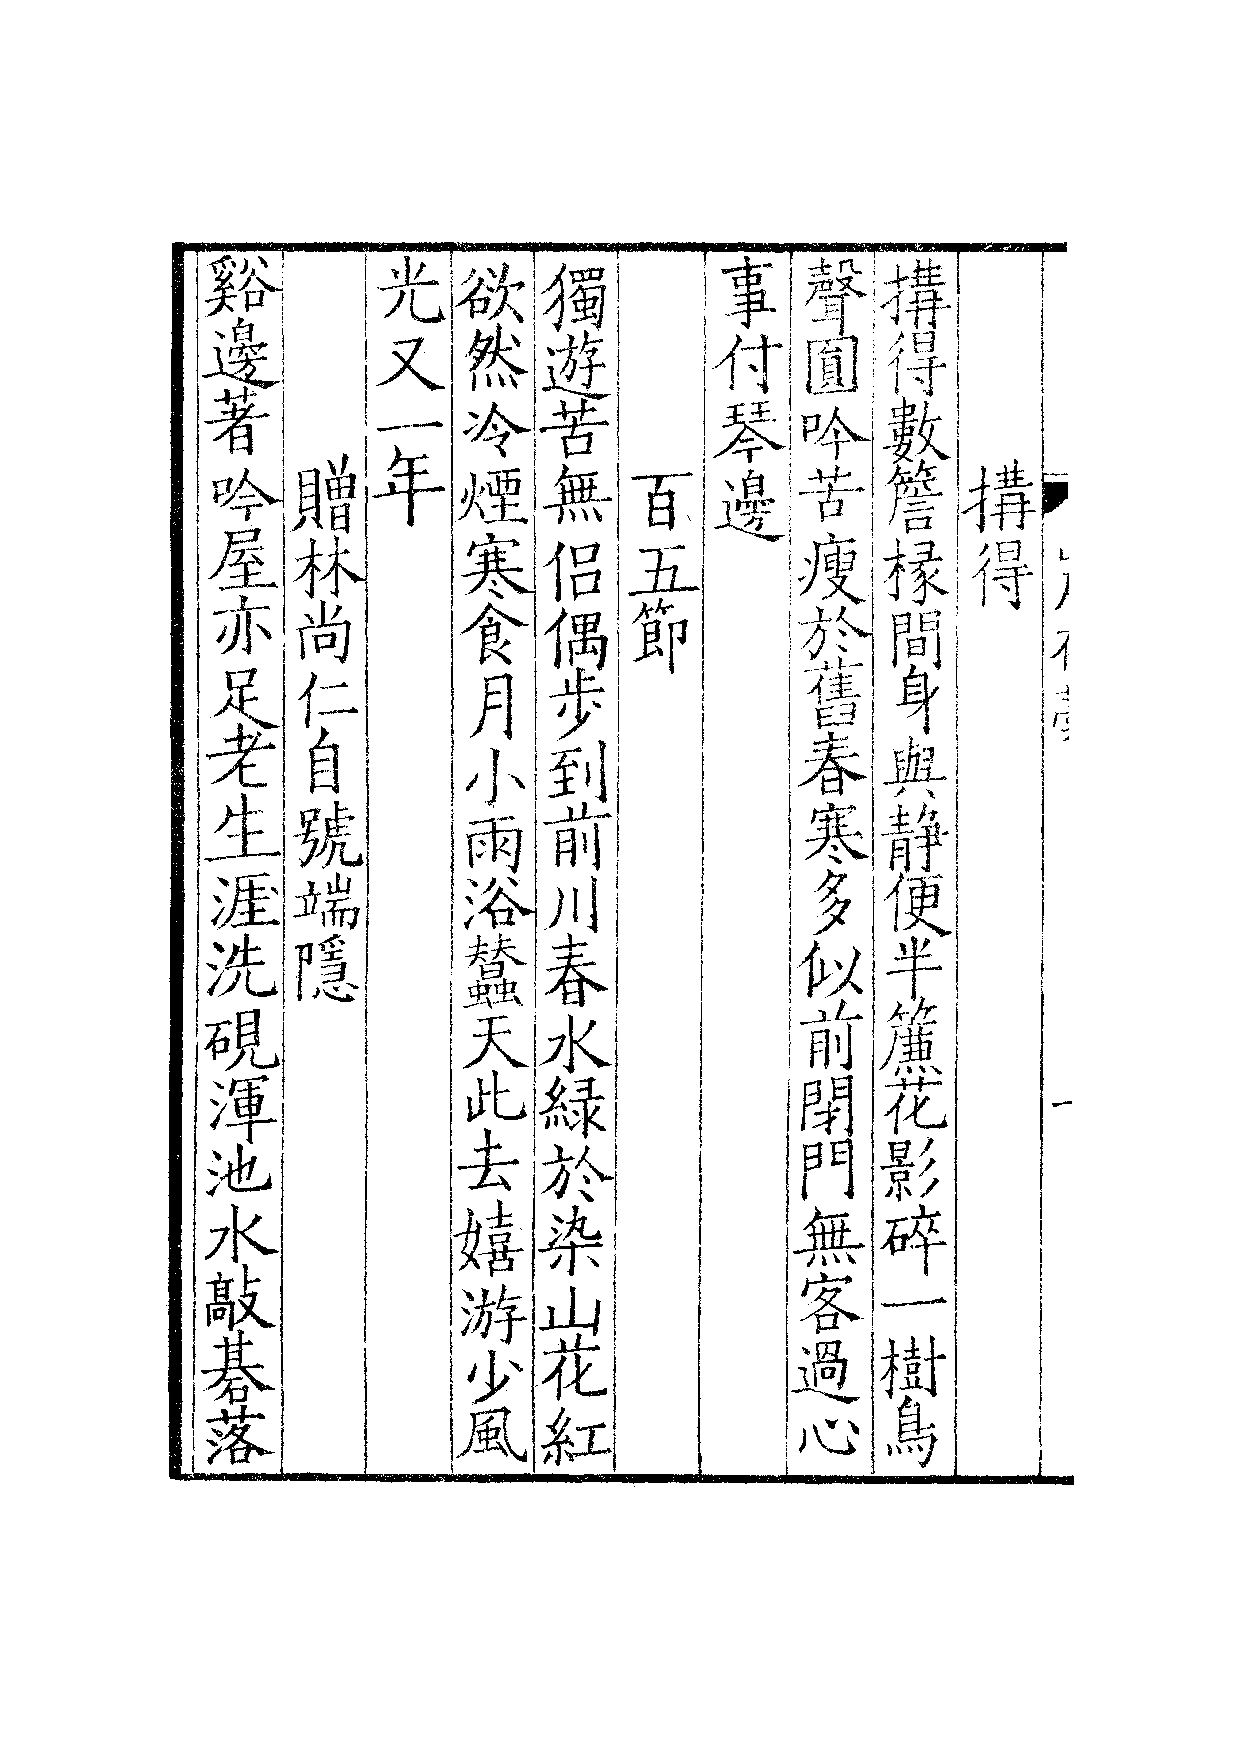 搆得
搆得數簷椽間身與靜便半簾花影碎一樹鳥
聲圓吟苦瘦於舊春寒多似前閉門無客過心
事付琴邊
百五節
獨遊苦無侣偶步到前川春水緑於染山花紅
欲然冷煙寒食月小雨浴蠶天此去嬉游少風
光又一年
贈林尚仁自號端隱
谿邊著吟屋亦足老生涯洗硯渾池水敲碁落